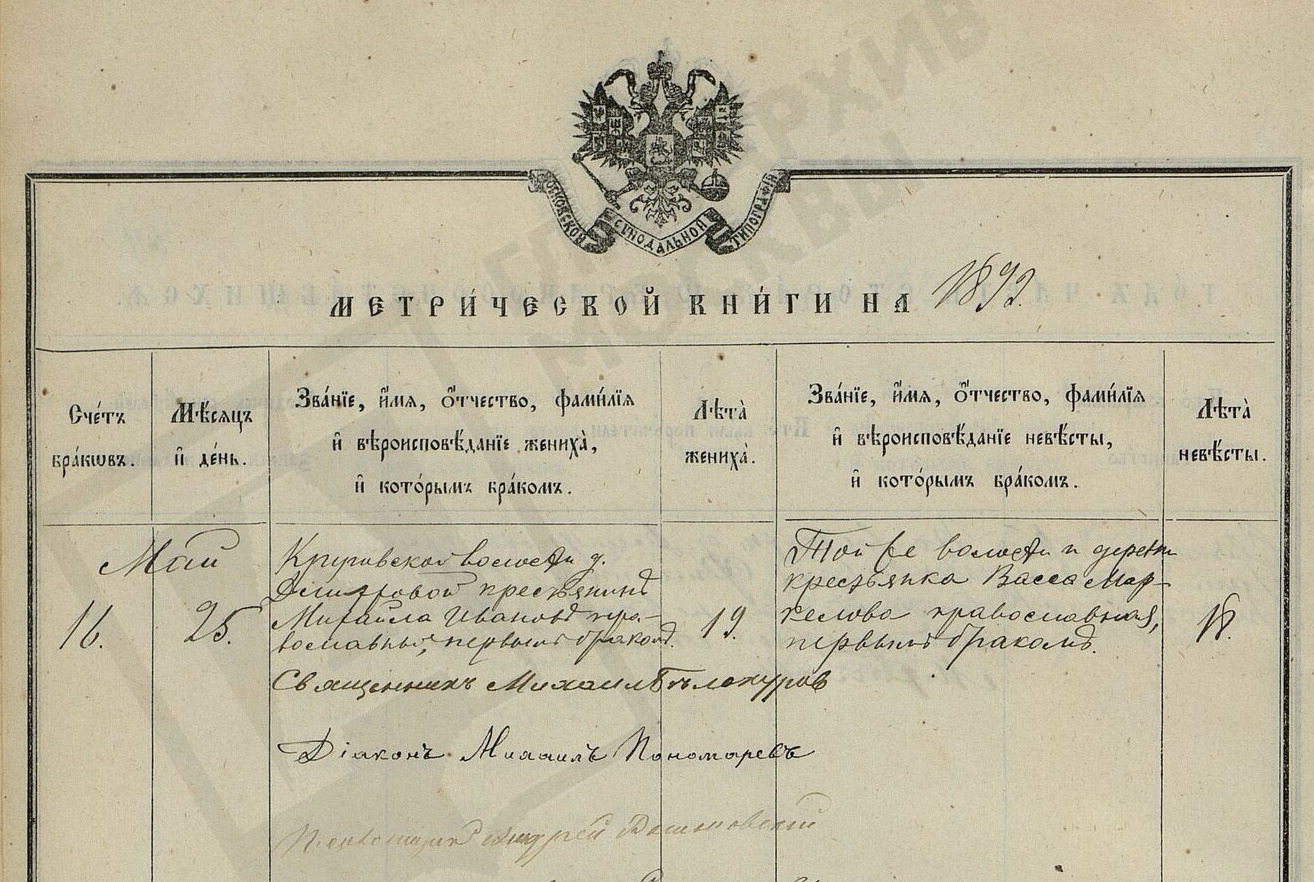 ГЛАВАРХИВ
МОСКВЫ
МОСКОВСКОЙ СѴНОДАЛЬНОЙ ТИПОГРАФІИ
МЕТРИ́ЧЕСКОЙ КНИ́ГИ НА 1892.
Сче́тъ
бра́кѡвъ.
Мѣ́сяцъ
и҆ де́нь.
Зва́нїе, и҆́мя, о҆́тчество, фами́лїя
и҆ вѣроисповѣ́данїе жениха̀,
и҆ кото́рымъ бра́комъ.
Лѣ́та
жениха̀.
Зва́нїе, и҆́мя, о҆́тчество, фами́лїя
и҆ вѣроисповѣ́данїе невѣ́сты,
и҆ кото́рымъ бра́комъ.
Лѣ́та
невѣ́сты.
Май
16.
25.
волости д.
крестьянинъ
Михаила Ивановъ пра-
вославный, первымъ бракомъ.
19.
Той же волости и деревни
крестьянка Васса Мар-
келова православная,
первымъ бракомъ.
18.
Священникъ Михаилъ Бѣлокуровъ
Діаконъ Михаилъ Пономаревъ
Псаломщикъ Андрей